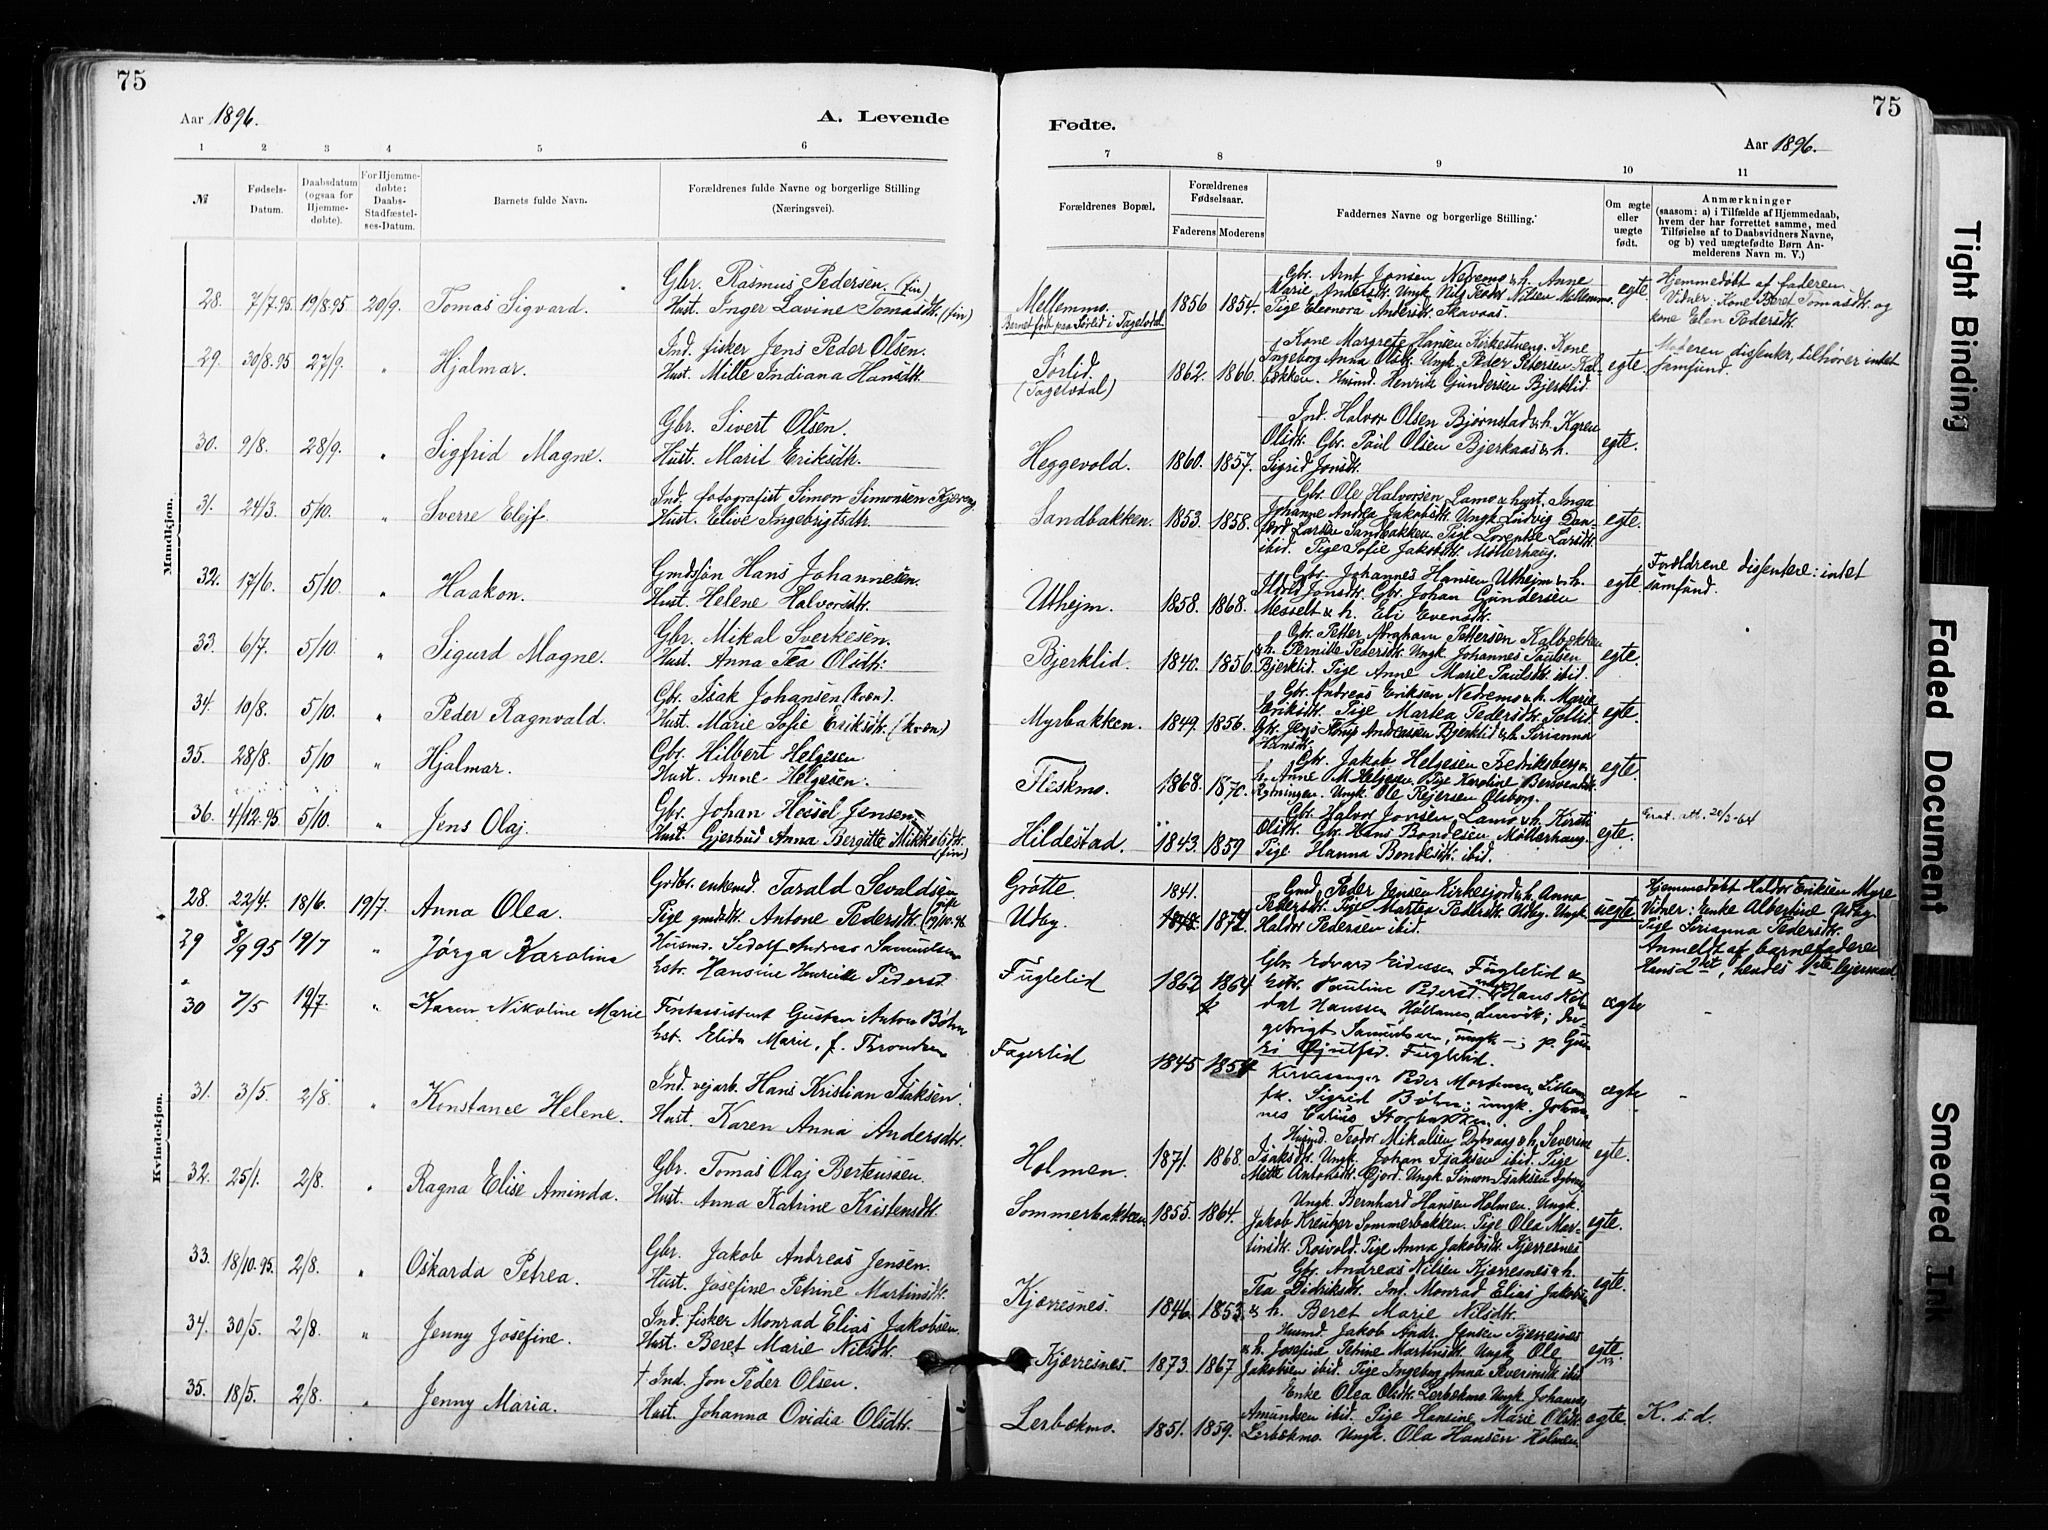 75
Aar 1896.
A. Levende
1 2 3 4 5 6
№
Fødsels-Datum.
Daabsdatum (ogsaa for Hjemme-døbte).
For Hjemme-døbte: Daabs-Stadfæstel-ses-Datum.
Barnets fulde Navn.
Forældrenes fulde Navne og borgerlige Stilling (Næringsvei).
Mandkjøn.
28. 7/7.95 19/8.95 20/9. Tomas Sigvard. Gbr. Rasmus Pedersen. (fin)
Hust. Inger Lavine Tomasdtr. (fin)
29. 30/8.95 27/9. " Hjalmar. Ind. fisker Jens Peder Olsen.
Hust. Mille Indiana Hansdtr.
30. 9/8. 28/9. " Sigfrid Magne. Gbr. Sivert Olsen.
Hust. Marit Eriksdtr.
31. 24/3. 5/10. " Sverre Elejf. Ind. fotografist Simon Simonsen Kjæreng
Hust. Elive Ingebrigtsdtr.
32. 17/6. 5/10. " Haakon. Gmdsøn Hans Johannesen.
Hust. Helene Halvorsdtr.
33. 6/7. 5/10. " Sigurd Magne. Gbr. Mikal Sverkesen.
Hust. Anna Tea Olsdtr.
34. 10/8. 5/10. " Peder Ragnvald. Gbr. Isak Johansen (kvæn).
Hust. Marie Sofie Eriksdtr. (kvæn)
35. 28/8. 5/10 " Hjalmar. Gbr. Hilbert Helgesen
Hust. Anne Helgesen.
36. 4/12.95 5/10. " Jens Olaj. Gbr. Johan Hessel Jensen
Hust. Gjertrud Anna Bergitte Mikkelsdtr. (fin)
Kvindekjøn.
28. 22/4. 18/6. 19/7. Anna Olea. Grdbr. enkemd. Tarald Sevaldsen
Pige gmdsdtr. Antone Pedersdtr.
29 8/9 95 19/7 " Jørga Karolina Husmd. Sedolf Andreas Samuelsen
hstr. Hansine Henriette Pedersd.
30 7/5 19/7 " Karen Nikoline Marie Forstassistent Gustav Anton Bøhn
hst. Elida Marie, f. Throndsen
31. 3/5. 2/8. " Konstance Helene. Ind. vejarb. Hans Kristian Isaksen.
Hust. Karen Anna Andersdtr.
32. 25/1. 2/8. " Ragna Elise Aminda. Gbr. Tomas Olaj Berteussen.
Hust. Anna Katrine Kristensdtr.
33. 18/10.95. 2/8. " Oskarda Petrea. Gbr. Jakob Andreas Jensen.
Hust. Josefine Petrine Martinsdtr.
34. 30/5. 2/8. " Jenny Josefine. Ind. fisker Monrad Elias Jakobsen.
Hust. Beret Marie Nilsdtr.
35. 18/5. 2/8. " Jenny Maria. † Ind. Jon Peder Olsen.
Hust. Johanna Ovidia Olsdtr.
75
Fødte.
Aar 1896.
7 8 9 10 11
Forældrenes Bopæl.
Forældrenes Fødselsaar.
Faderens Moderens
Faddernes Navne og borgerlige Stilling.
Om ægte eller uægte født.
Anmærkninger
(saasom: a) i Tilfælde af Hjemmedaab,
hvem der har forrettet samme, med
Tilføielse af to Daabsvidners Navne,
og b) ved uægtefødte Børn An-
melderens Navn m. V.)
Gbr. Arnt Jonsen Nedremo & h. Anne
Mellemmo. 1856 1854. Marie Andersdtr. Ungk. Nils Teodor Nilsen Mellemmo. egte Hjemmedøbt af faderen.
Barnet født paa Sørlid i Tagelvdal. Pige Eleonora Andersdtr. Skavaas. Vidner: Kone Beret Tomasdtr. og
kone Elen Pedersdtr.
Kone Margrete Hansen Kirkestueng. Kone
Sørlid. (Tagelvdal) 1862. 1866. Ingeborg Anna Olsdtr. Ungk. Peder Petersen Kal- egte. Moderen dissenter, tilhører intet
bækken. Husmd. Henrik Gundersen Bjerklid. samfund.
Ind. Halvor Olsen Bjørnstad & h. Karen
Heggevold. 1860. 1857. Olsdtr. Gbr. Paul Olsen Bjerkaas & h. egte.
Sigrid Jonsdtr.
Gbr. Ole Halvorsen Lamo & hust. Inga
Sandbakken. 1853. 1858. Johanne Andrea Jakobsdtr. Ungk. Ludvig Dan- egte.
ford Larsen Sandbakken. Pige Lorentse Larsdtr.
ibid. Pige Sofie Jakobsdtr. Møllerhaug.
Gbr. Johannes Hansen Uthejm & h.
Uthejm. 1858. 1868. Ildrid Jonsdtr. Gbr. Johan Gundersen egte. Forældrene dissentere: intet
Messelt & h. Eli Evensdtr. samfund.
Gbr. Petter Abraham Pettersen Kalbækken
Bjerklid. 1840. 1856. & h. Pernille Pedersdtr. Ungk. Johannes Paulsen egte.
Bjerklid. Pige Anne Marie Paulsdtr. ibid.
Gbr. Andreas Eriksen Nedremo & h. Marie
Myrbakken. 1849. 1856. Eriksdtr. Pige Martea Pedersdtr. Solid. egte.
Gbr. Jens Andreassen Bjerklid & h. Sirianna
Hansdtr.
Gbr. Jakob Helgesen Fredriksberg &
Fleskmo. 1868. 1870. h. Anne M. Helgesen. Pige Karoline egte.
Rytningen. Ungk. Ole Rejersen Olsborg.
Gbr. Halvor Jonsen Lamo & h. Kersti
Hildestad. 1843. 1859 Olsdtr. Gbr. Hans Bondesen Møllerhaug. egte. Erst. att. 20/3-64
Pige Hanna Bendesdtr. ibid.
Grøtte. 1841. Gmd. Peder Jensen Kirkesjord & h. Anna
Udby. 1874 Pedersdtr. Pige Martea Pedersdtr. Udby. Ungk. uegte Hjemmedøbt Haldor Eriksen Myre
Haldor Pedersen ibid. Vidner: Enke Albertine Udby
Pige Sirianna Pedersdtr.
Anmeldt af barnefaderen
Hans 2det, hendes 1ste lejermaal
Gbr. Edvard Eidessen Fuglelid &
Fuglelid 1862 1864 hstr. Pauline Pederst. ungk. Hans Kol- ægte
dal Hanssen Høllanes, Lenvik; In-
gebrigt Samuelsen, ungk —; p. Gu-
ri Øjulfsd. Fuglelid.
Fagerlid 1845 1854 Kirkesanger Peder Mortensen Lillem
fk. Sigrid Bøhn; ungk. Johan- ægte
nes Carius Storbakken.
Husmd. Teodor Mikalsen Dybvaag & h. Severine
Holmen. 1871. 1868. Isaksdtr. Ungk. Johan Isaksen ibid. Pige egte.
Mette Antonsdtr. Gjord. Ungk. Simon Isaksen Dybvaag
Ungk. Bernhard Hansen Holmen. Ungk.
Sommerbakken. 1855. 1864. Jakob Kreutzer Sommerbakken. Pige Olea Mar- egte.
tinsdtr. Rosvold. Pige Anna Jakobsdtr. Kjerresnes
Gbr. Andreas Nilsen Kjerresnes & h.
Kjærresnes. 1846. 1853. Tea Didriksdtr. Ind. Monrad Elias Jakobsen egte.
& h. Beret Marie Nilsdtr.
Husmd. Jakob Andr. Jensen Kjerresnes
Kjærresnes. 1873. 1867 & h. Josefine Petrine Martinsdtr. Ungk. Ole egte
Jakobsen ibid. Pige Ingeborg Anna Sverinsdtr. ibid.
Enke Olea Olsdtr. Lerbekmo. Ungk. Johannes
Lerbækmo. 1851. 1859. Amundsen ibid. Pige Hansine Marie Olsdtr. egte. K. s. d.
Lerbækmo. Ungk. Ola Hansen Holmen.
Tight Binding
Faded Document
Smeared Ink